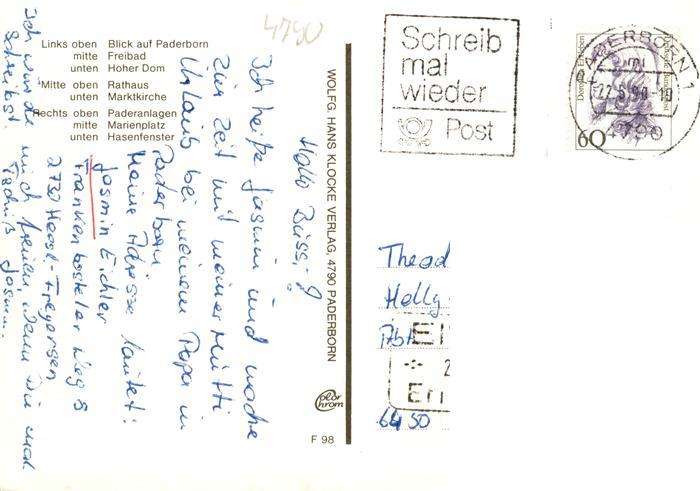 4790
Links oben Blick auf Paderborn
mitte Freibad
unten Hoher Dom
Mitte oben Rathaus
unten Marktkirche
Rechts oben Paderanlagen
mitte Marienplatz
unten Hasenfenster
Hallo Bussi!
Ich heiße Jasmin und mache
zur Zeit mit meiner Mutti
Urlaub bei meinem Papa in
Paderborn
Meine Adresse lautet:
Jasmin Eichler
Frankenbosteler Weg 8
2730 Heesl.-Freyersen
Ich würde mich freuen, wenn Du mal
schreibst. Tschüß Jasmin.
WOLFG. HANS KLOCKE VERLAG, 4790 PADERBORN
color chrom
F 98
Schreib
mal
wieder
Post
PADERBORN 1
mi
-22.5.90-10
4790
Deutsche Bundespost
60
Theod
Helly
Abt
EI
2
En
6450